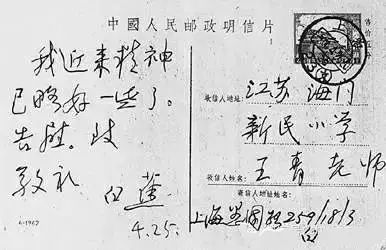 中國人民邮政明信片
我近来精神
已略好一些了。
告慰。此
敬礼
白蕉
4.25.
收信人地址:
江苏海门
新民小学
收信人姓名:
王青老师
寄信人地址姓名:
上海 259/18/3
白